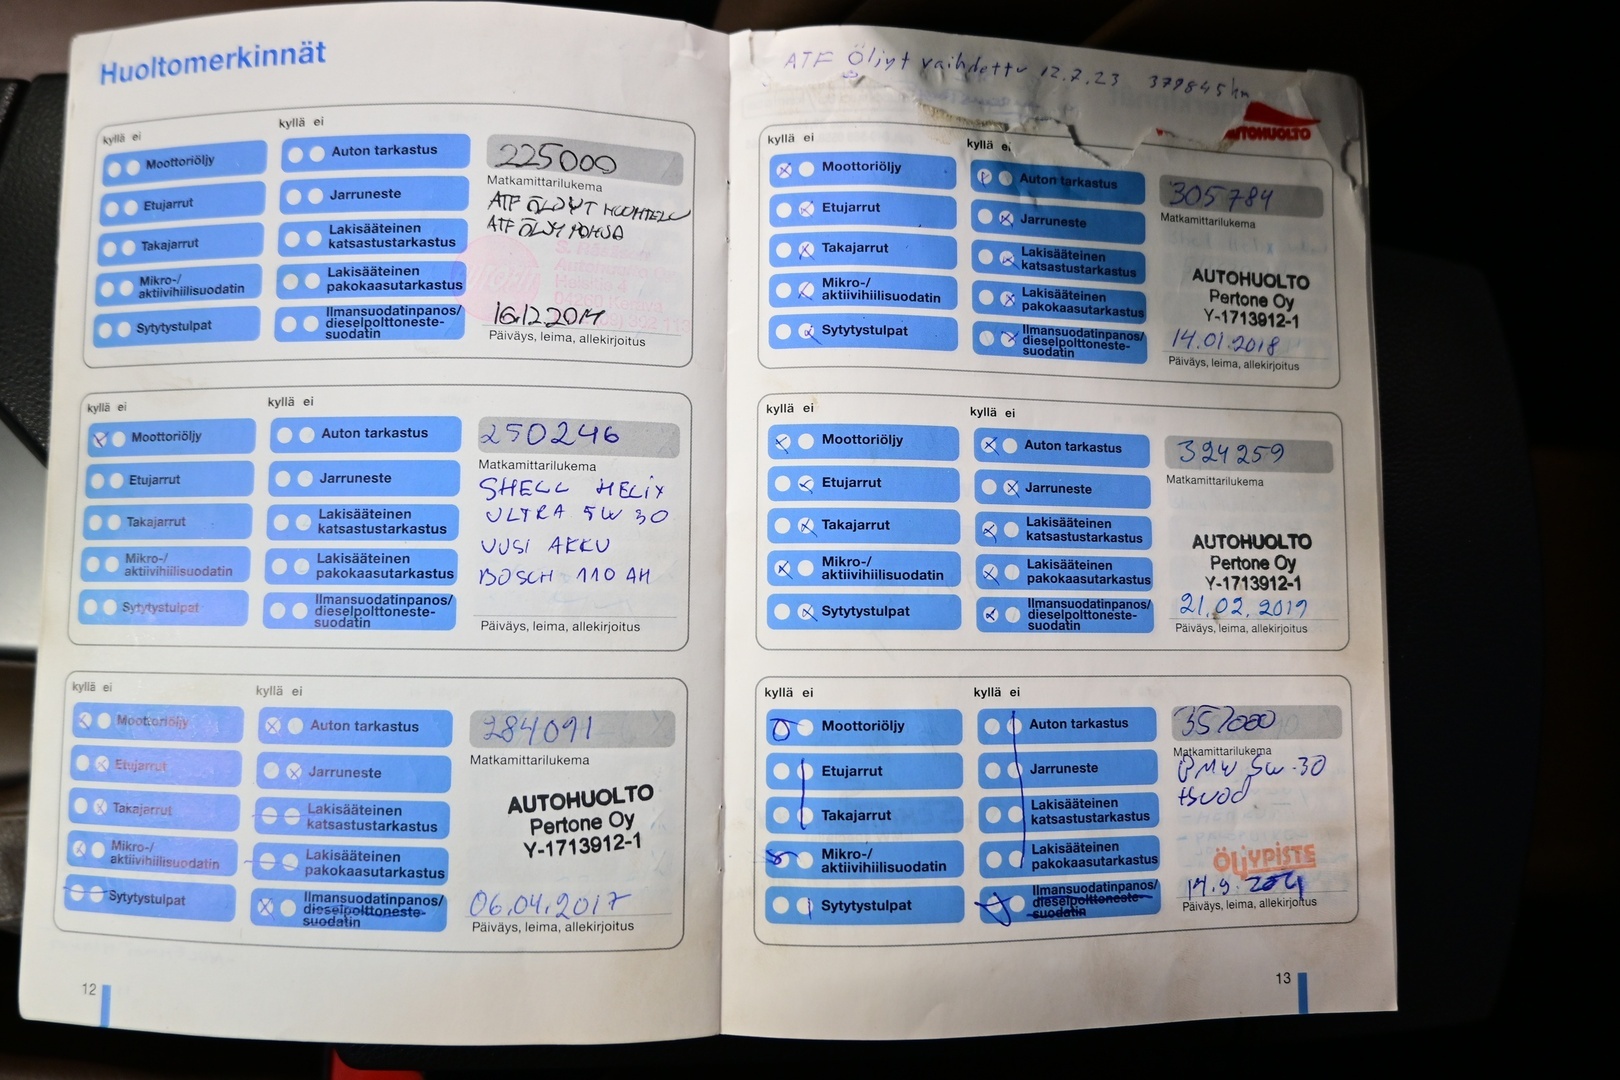 Huoltomerkinnät
kyllä ei
kyllä ei
Moottoriöljy
Auton tarkastus
225000
Etujarrut
Jarruneste
Matkamittarilukema
ATF ÖLJYT HUUHTELU
Takajarrut
Lakisääteinen
katsastustarkastus
ATF ÖLJY POHJA
Mikro-/
aktiivihiilisuodatin
Lakisääteinen
pakokaasutarkastus
Sytytystulpat
Ilmansuodatinpanos/
dieselpolttoneste-
suodatin
16.12.2014
Päiväys, leima, allekirjoitus
kyllä ei
kyllä ei
Moottoriöljy
Auton tarkastus
250246
Matkamittarilukema
Etujarrut
Jarruneste
SHELL HELIX
ULTRA 5W 30
Takajarrut
Lakisääteinen
katsastustarkastus
UUSI AKKU
BOSCH 110 AH
Mikro-/
aktiivihiilisuodatin
Lakisääteinen
pakokaasutarkastus
Sytytystulpat
Ilmansuodatinpanos/
dieselpolttoneste-
suodatin
Päiväys, leima, allekirjoitus
kyllä ei
kyllä ei
Moottoriöljy
Auton tarkastus
284091
Matkamittarilukema
Etujarrut
Jarruneste
Takajarrut
Lakisääteinen
katsastustarkastus
AUTOHUOLTO
Pertone Oy
Y-1713912-1
Mikro-/
aktiivihiilisuodatin
Lakisääteinen
pakokaasutarkastus
Sytytystulpat
Ilmansuodatinpanos/
dieselpolttoneste-
suodatin
06.04.2017
Päiväys, leima, allekirjoitus
12
ATF Öljyt vaihdettu 12.7.23 379845km
AUTOHUOLTO
kyllä ei
kyllä ei
Moottoriöljy
Auton tarkastus
305784
Matkamittarilukema
Etujarrut
Jarruneste
Takajarrut
Lakisääteinen
katsastustarkastus
AUTOHUOLTO
Pertone Oy
Y-1713912-1
Mikro-/
aktiivihiilisuodatin
Lakisääteinen
pakokaasutarkastus
Sytytystulpat
Ilmansuodatinpanos/
dieselpolttoneste-
suodatin
14.01.2018
Päiväys, leima, allekirjoitus
kyllä ei
kyllä ei
Moottoriöljy
Auton tarkastus
324259
Matkamittarilukema
Etujarrut
Jarruneste
Takajarrut
Lakisääteinen
katsastustarkastus
AUTOHUOLTO
Pertone Oy
Y-1713912-1
Mikro-/
aktiivihiilisuodatin
Lakisääteinen
pakokaasutarkastus
Sytytystulpat
Ilmansuodatinpanos/
dieselpolttoneste-
suodatin
21.02.2019
Päiväys, leima, allekirjoitus
kyllä ei
kyllä ei
Moottoriöljy
Auton tarkastus
357000
Matkamittarilukema
Etujarrut
Jarruneste
BMW 5W-30
Takajarrut
Lakisääteinen
katsastustarkastus
Mikro-/
aktiivihiilisuodatin
Lakisääteinen
pakokaasutarkastus
ÖLJYPISTE
Sytytystulpat
Ilmansuodatinpanos/
dieselpolttoneste-
suodatin
14.9.2021
Päiväys, leima, allekirjoitus
13